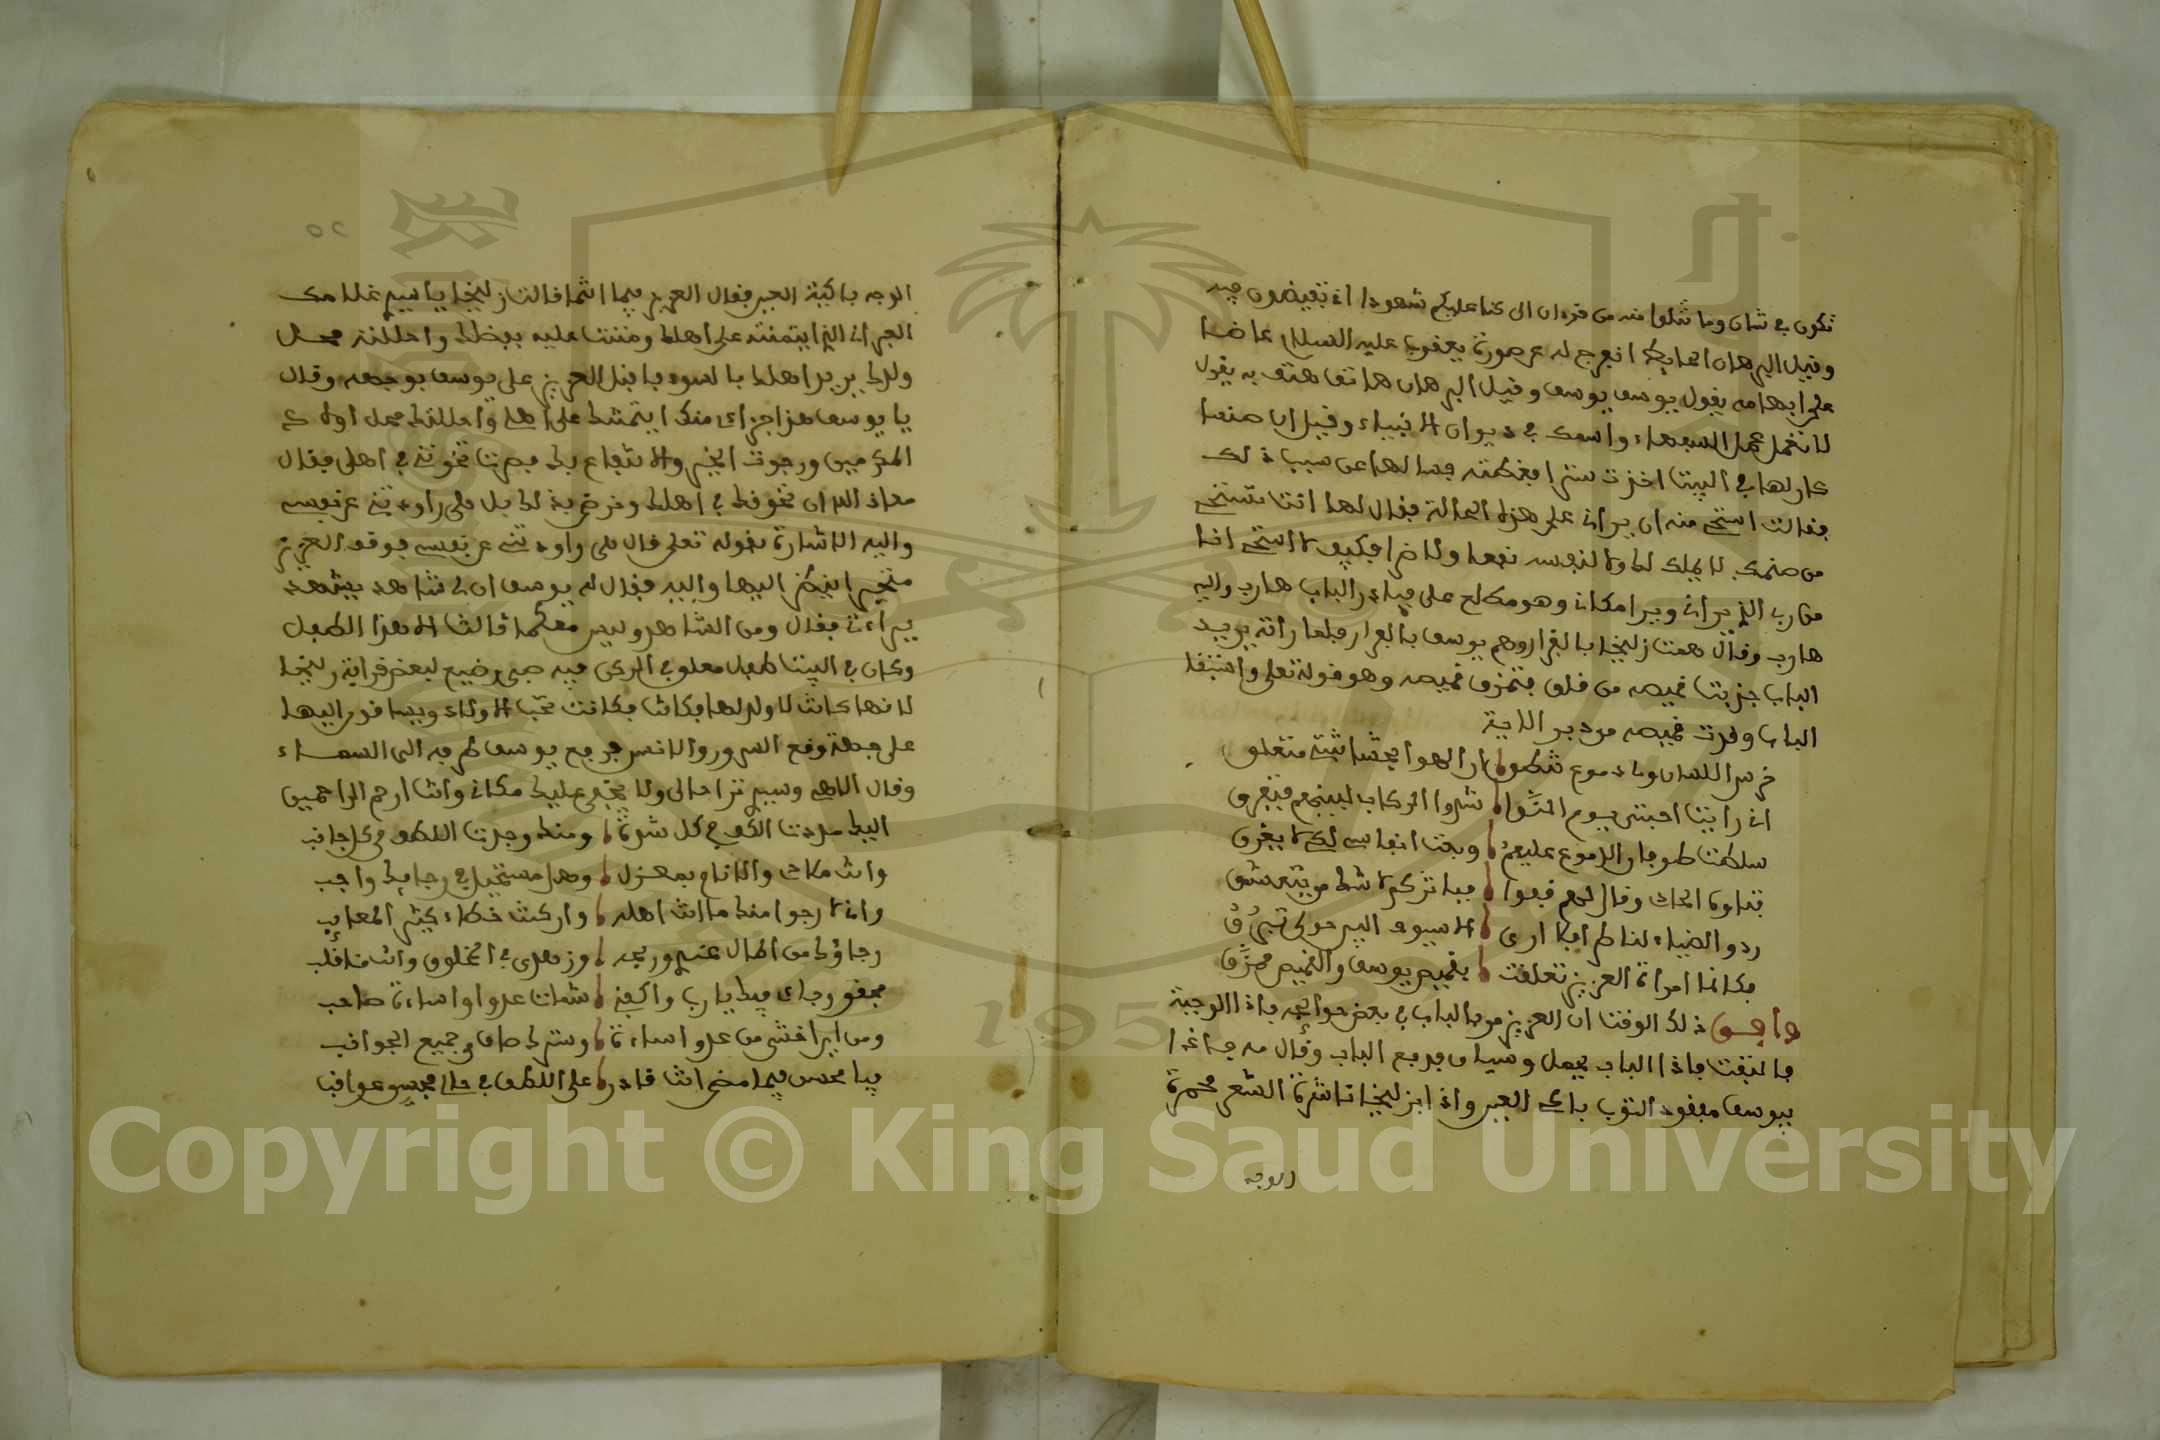 تكون في شان وما تتلوا منه من قرءان الى كنا عليكم شهودا اذ تفيضون فيه
وقيل البرهان الحايط انفرج له عن صورة يعقوب عليه السلام عاضا
على ابهامه يقول يوسف يوسف وقيل البرهان هاتف هتف به يقول
لا تعمل عمل السفهاء واسمك في ديوان الانبياء وقيل ان صنما
كان لها في البيت اخذت سترا فغطته فسالها عن سبب ذلك
فقالت استحي منه ان يراني على هذه الحالة فقال لها انت تستحي
من صنمك لا يملك لك ولا لنفسه نفعا ولا ضرا فكيف لا استحي انا
من رب الذي يراني ويرا مكاني وهو مطلع علي فبادر الباب هارب واليه
هارب وقال همت زليخا بالقرار وهم يوسف بالفرار فلما راته يريد
الباب جذبت قميصه من خلف فتمزق قميصه وهو قوله تعلى واستبقا
الباب وقدت قميصه من دبر الاية
خرس اللسان وماء دموع تنطق نار الهوا بحشاشتي تتعلق
اني رايت احبتي يوم النوا شدوا الركاب لبينهم فتفرق
سلطت طوفان الدموع عليهم وبقت انفاسي لكي لا يغرق
فتعاونا الحادي وقال لهم قفوا فبما تركم لا شك من يتعشق
ردوا الضياء لناظري فما ارى الا سيوف البين حولي تبرق
فكانما امراة العزيز تعلقت بقميص يوسف والقميص ممزق
وافق ذلك الوقت ان العزيز مر بالباب في بعض حوايجه فاذا الوجبة
فالتفت فاذا الباب يعمل وسياق فدفع الباب وقال مه فاذا
بيوسف مقدود الثوب باكي العين واذا بزليخا ناشرة الشعر محمرة
الوجه
الوجه باكية العين فقال العزيز فيما انتما فقالت زليخا يا سيدي غلامك
العبراني الذي ايتمنته على اهلك ومننت عليه بفضلك واحللته محل
ولدك يريد اهلك بالسوء فاقبل العزيز على يوسف بوجهه وقال
يا يوسف هذا جزاي منك ايتمنتك على اهلي واحللتك محل اولادي
المكرمين ورجوت الخير والانتفاع بك فصرت تخونني في اهلي فقال
معاذ الله ان نخونك في اهلك ونرضى بذلك بل هي راودتني عن نفسي
واليه الاشارة بقوله تعلى قال هي راودتني عن نفسي فوقف العزيز
متحيرا ينظر اليها واليه فقال له يوسف ان لي شاهد يشهد
ببراءتي فقال ومن الشاهد وليس معكما ثالث الا هذا الطفل
وكان في البيت طفل معلق في المرجى فيه صبي رضيع لبعض قرابة زليخا
لانها كانت لا ولد لها فكانت فكانت تحب الاولاد وبيدا قدم اليها
على جهة وقع السرور والانس فرفع يوسف طرفه الى السماء
وقال الاهي وسيدي ترا حالي ولا يخفى عليك مكاني وانت ارحم الراحمين
اليك مددت الكف في كل شدة ومنك وجدت اللطف في كل جانب
وانت ملاذي والانام بمعزل وهل مستحيل في رجايك واجب
واني لارجوا منك ما انت اهله وان كنت خطاء كثير المعايب
رجاؤك من المال عندي وربحه وزهدي في المخلوق وانت مناقلب
فحقق رجاي فيك يا رب واكفني شمات عدوا واساءة صاحب
ومن اين اخشى من عدو اساءة وسترك صاف في جميع الجوانب
فيا محسن فيما مضى انت قادر على اللطف في حالي بحسن عواقب